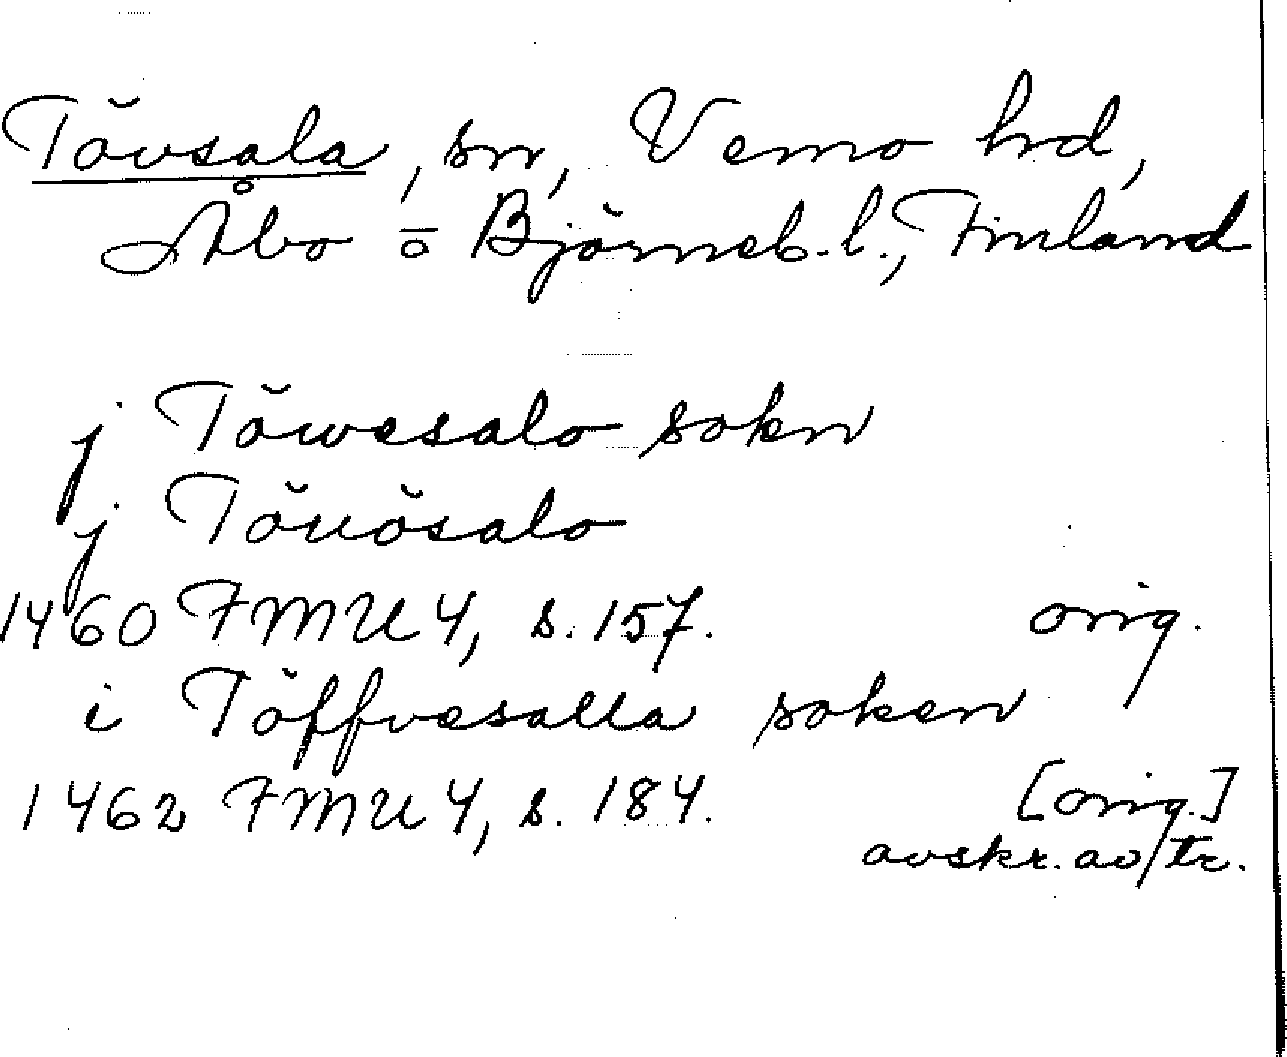 Tövsala, sn, Vemo hrd,
Åbo o Björneb. l., Finland
j Töwesalo sokn
j Töuösalo
1460 FMU 4, s. 157. orig.
i Töffvesalla soken
1462 FMU 4, s. 184. [orig.]
avskr. av tr.